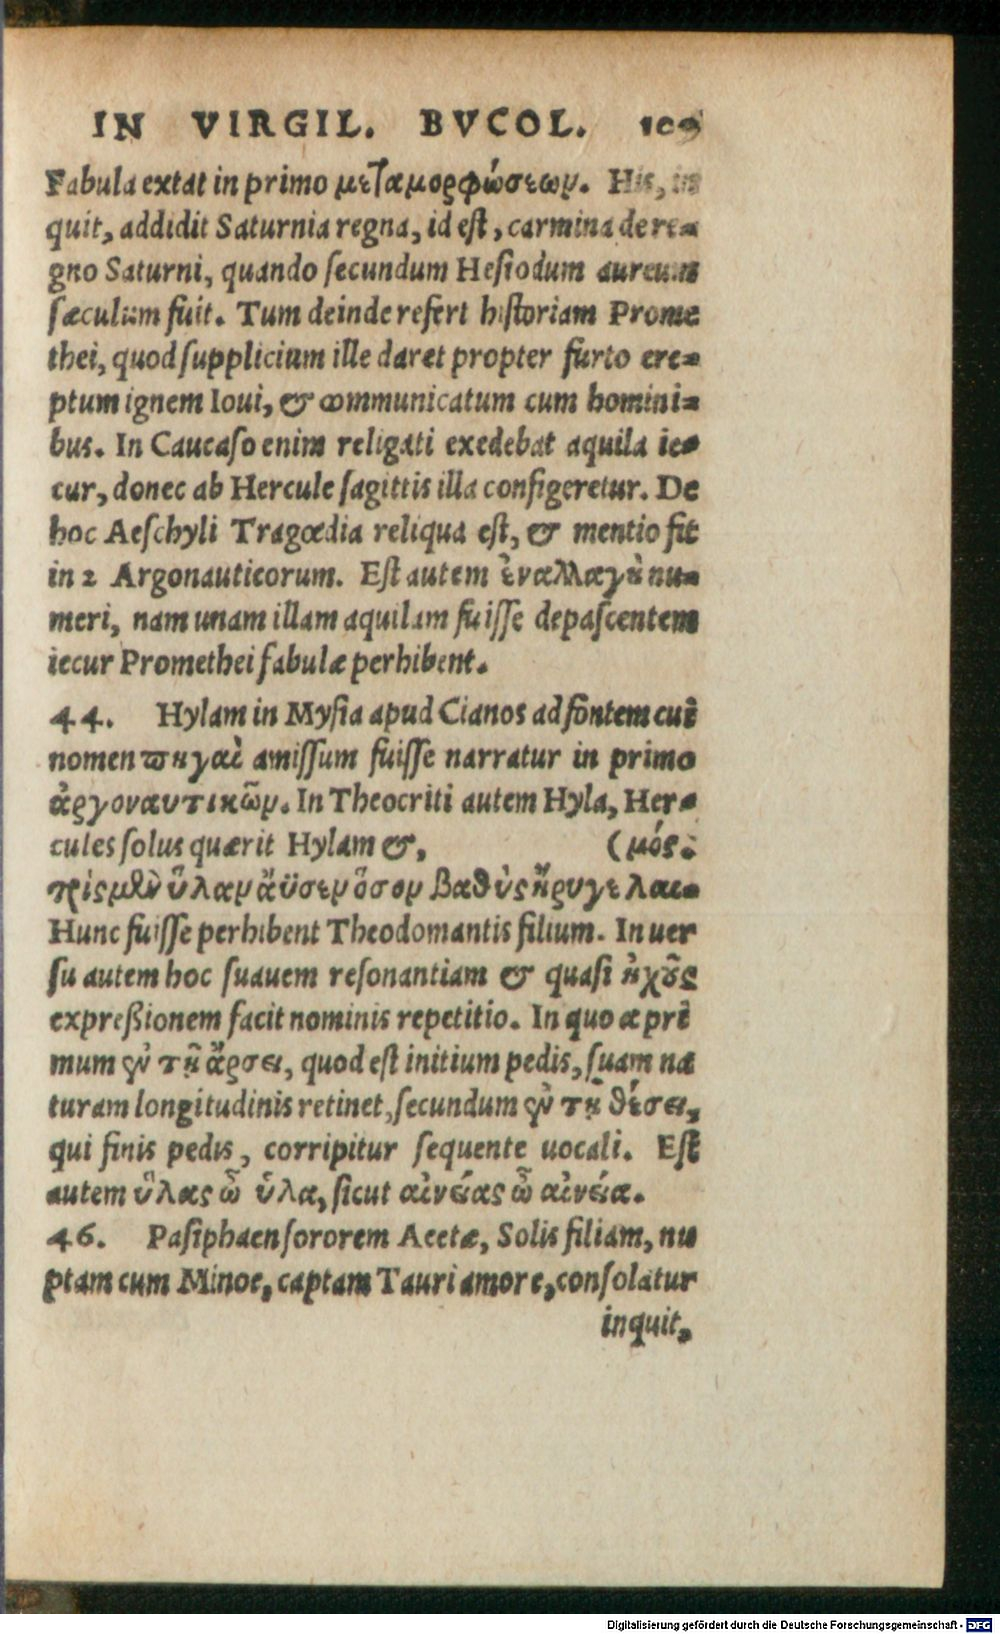 IN VIRGIL. BVCOL. 109
Fabula extat in primo μεταμορφώσεων. His, in
quit, addidit Saturnia regna, id eſt, carmina de re-
gno Saturni, quando ſecundum Heſiodum aureum
ſæculum fuit. Tum deinde refert hiſtoriam Prome
thei, quod ſupplicium ille daret propter furto ere-
ptum ignem Ioui, & communicatum cum homini-
bus. In Caucaſo enim religati exedebat aquila ie-
cur, donec ab Hercule ſagittis illa configeretur. De
hoc Aeſchyli Tragœdia reliqua eſt, & mentio fit
in 2 Argonauticorum. Eſt autem ἐναλλαγὴ nu-
meri, nam unam illam aquilam fuiſſe depaſcentem
iecur Promethei fabulæ perhibent.
44. Hylam in Myſia apud Cianos ad fontem cuĩ
nomen πηγαὶ amiſſum fuiſſe narratur in primo
ἀργοναυτικῶν. In Theocriti autem Hyla, Her-
cules ſolus quærit Hylam &, (μός.
τρὶς μὲν ὕλαν ἄϋσεν ὅσον βαθὺς ἤρυγε λαι-
Hunc fuiſſe perhibent Theodomantis filium. In uer
ſu autem hoc ſuauem reſonantiam & quaſi ἠχοῦς
expreßionem facit nominis repetitio. In quo a prĩ
mum ἐν τῇ ἄρσει, quod eſt initium pedis, ſuam na
turam longitudinis retinet, ſecundum ἐν τῇ θέσει,
qui finis pedis, corripitur ſequente uocali. Eſt
autem ὕλας ὦ ὕλα, ſicut αἰνείας ὦ αἰνεία.
46. Paſiphaen ſororem Aeetæ, Solis filiam, nu
ptam cum Minoe, captam Tauri amore, conſolatur
inquit,
Digitalisierung gefördert durch die Deutsche Forschungsgemeinschaft - DFG